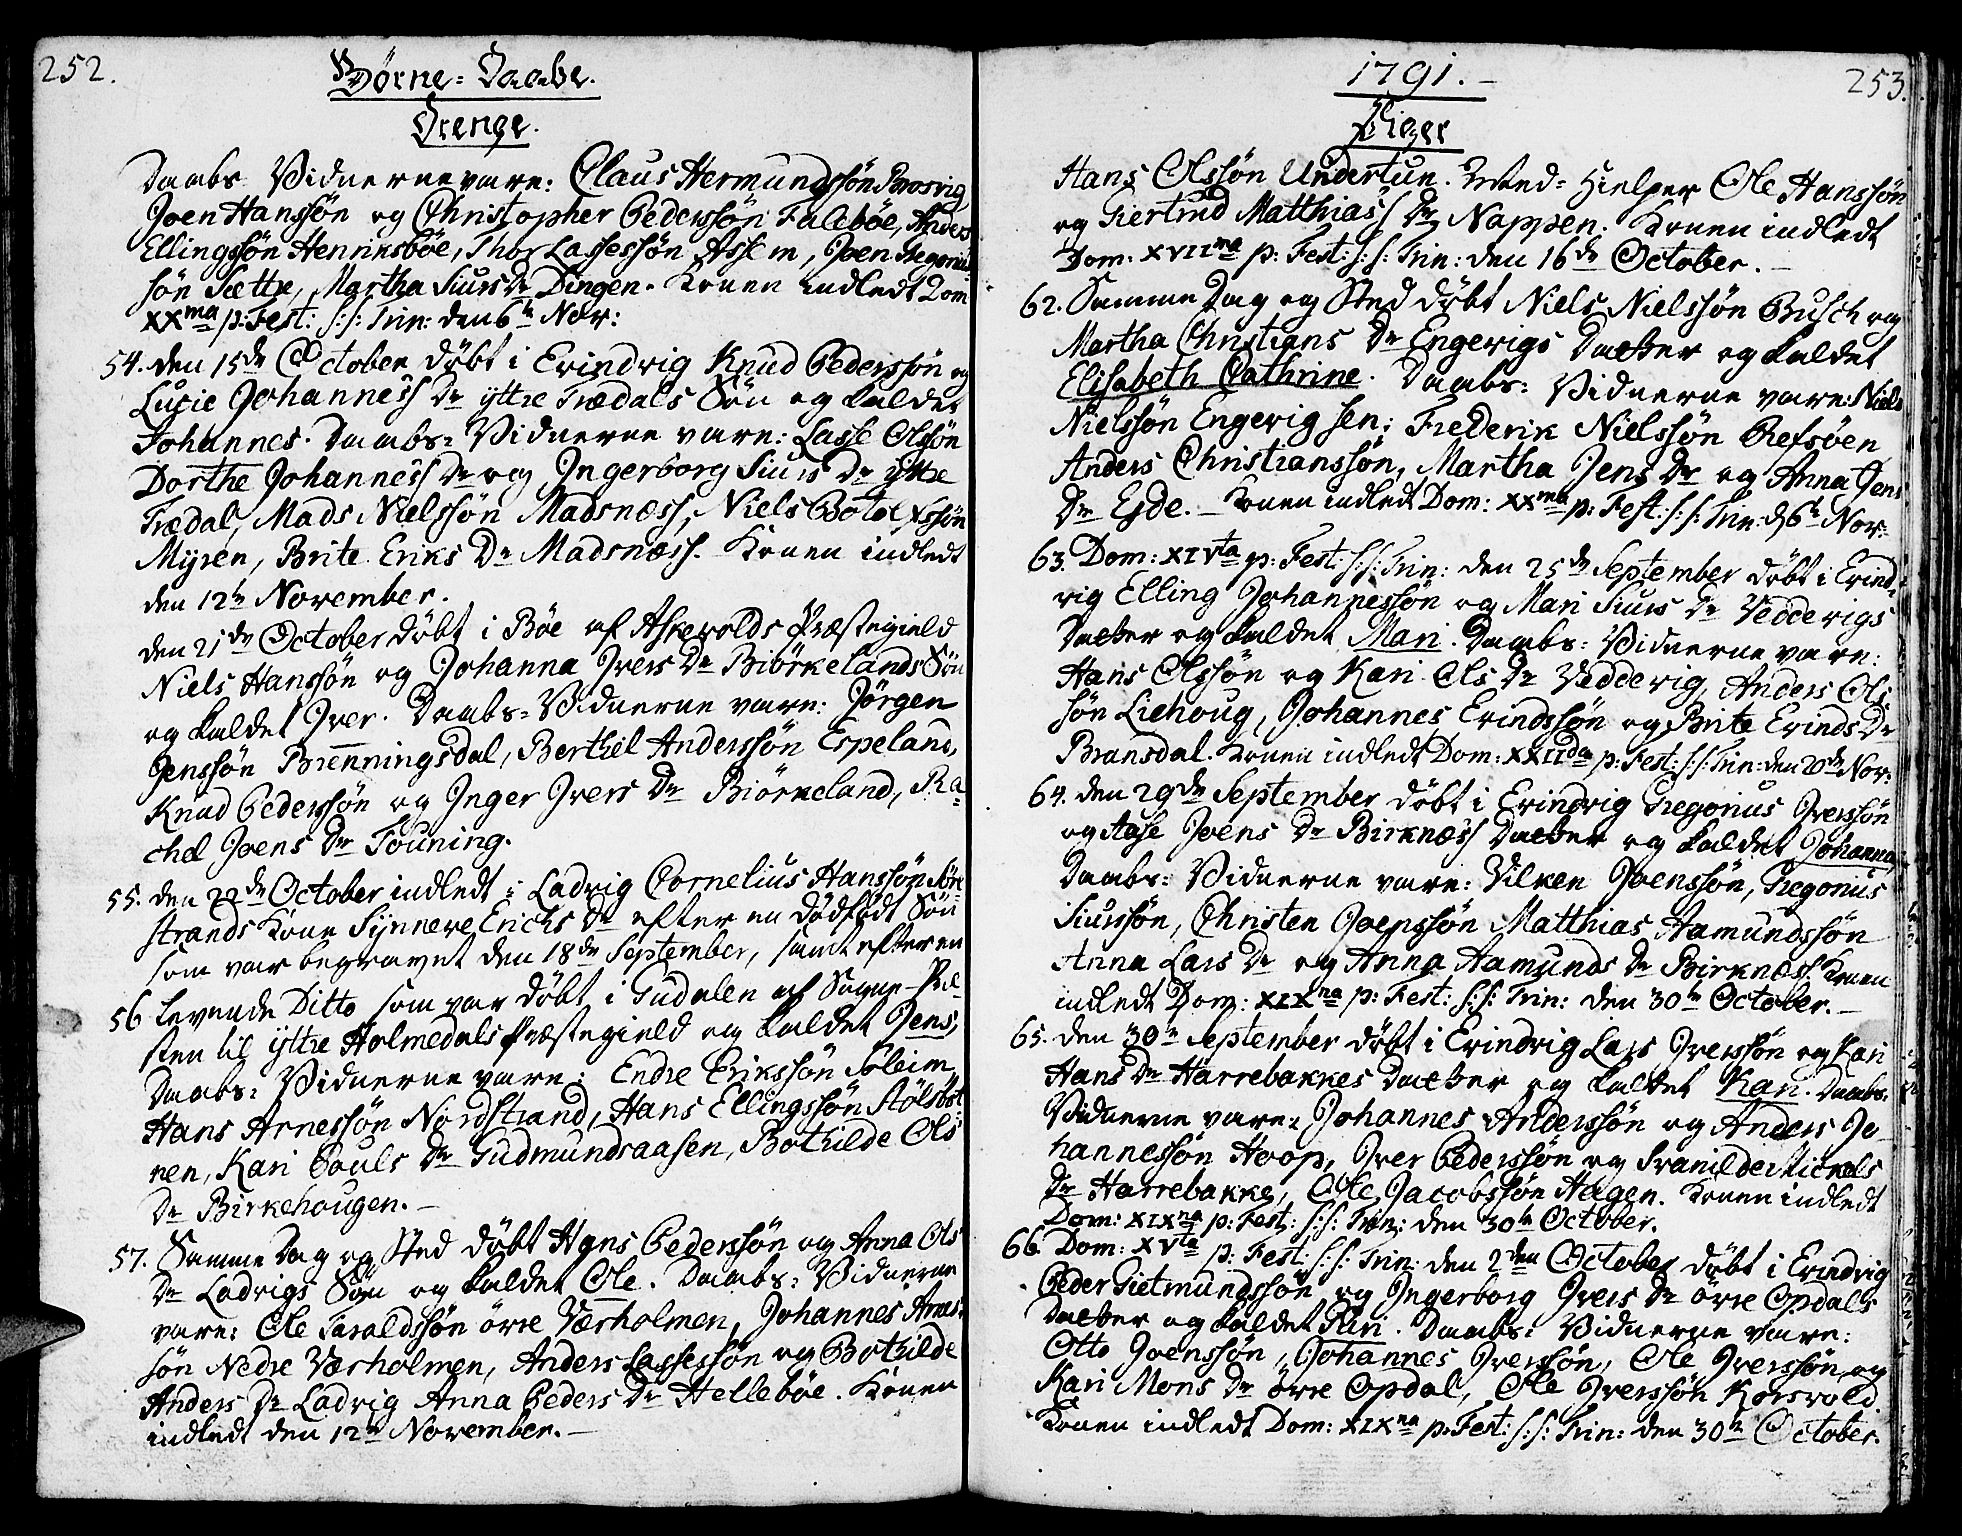 252.
Børne-Daabe.
Drenge.
Daabs Vidnerne vare: Claus Hermundssøn
Joen Hanssøn og Christopher Pederssøn Faleböe, Anders
Ellingssøn Henriksböe, Thor Lassessøn Assem, Joen Gregorius
søn Sættre, Martha Siurs Dr Dingen. Konen indledt Dom
XXma p: Fest: s:s: Trin: den 6te Nov:
54. den 15de October döbt i Eivindvig Knud Pederssøn og
Lucie Johanness Dr yttre Trædals Søn og kaldet
Johannes. Daabs-Vidnerne vare: Lasse Olssøn
Dorthe Johanness Dr og Ingerborg Siurs Dr yttre
Trædal, Mads Nielssøn Madsness, Niels Botolfssøn
Myren, Brite Eriks Dr Madsnæss. Konen indledt
den 12te November.
den 21de October döbt i Böe af Askevolds Præstegield
Niels Hanssøn og Johanna Ivers Dr Biörkelands Søn
og kaldet Iver. Daabs-Vidnerne vare: Jörgen
Jenssøn Brenningsdal, Berthel Anderssøn Espeland,
Knud Pederssøn og Inger Ivers Dr Biörkeland, Ra-
chel Joens Dr Touning.
55. den 22de October indledt i Ladvig Cornelius Hanssøn Nore
strands Kone Synneve Erichs Dr efter en dödfödt Søn
som var begravet den 18de September, samt efter en
56 levende Ditto som var döbt i Gudalen af Sogne-Præ-
sten til yttre Holmedals Præstegield og kaldet Jens,
Daabs-Vidnerne vare: Endre Erikssøn Soleim,
Hans Arnessøn Nordstrand, Hans Ellingssøn
nen, Kari Pouls Dr Gudmundsaasen, Bothilde Ols
Dr Birkehougen.
57. Samme Dag og Sted döbt Hans Pederssøn og Anna Ols
Dr Ladvigs Søn og kaldet Ole. Daabs-Vidnerne
vare: Ole Taraldssøn övre Værholmen, Johannes Arnes-
søn Nedre Værholmen, Anders Lassessøn og Bothilde
Anders Dr Ladvig Anna Peders Dr Helleböe. Konen
indledt den 12te November.
1791.
253.
Piger
Hans Olssøn Undertun. Med-Hielper Ole Hanssøn
og Giertrud Matthiass Dr Nappen. Konen indledt
Dom: XVIIma p: Fest: s:s: Trin: den 16de October.
62. Samme Dag og Sted döbt Niels Nielssøn Busch og
Martha Christians Dr Engevigs Datter og kaldet
Elisabeth Cathrine. Daabs-Vidnerne vare: Niels
Nielssøn Engevig sen: Frederik Nielssøn Refsøen
Anders Christianssøn, Martha Jens Dr og Anna Jens
Dr Eide. Konen indledt Dom: XXma p: Fest: s:s: Trin: d 6te Nov:
63. Dom: XIVta p: Fest: s:s: Trin: den 25de September döbt i Eivind-
vig Elling Johannessøn og Mari Siurs Dr Veddevigs
Datter og kaldet Mari. Daabs-Vidnerne vare:
Hans Olssøn og Kari Ols Dr Veddevig, Anders Ols
søn Liehoug, Johannes Eivindssøn og Brite Eivinds Dr
Bransdal. Konen indledt Dom: XXIIda p: Fest: s:s: Trin: den 20de Nov:
64. den 29de September döbt i Eivindvig Gregorius Iverssøn
og Aase Joens Dr Birknæss Datter og kaldet Johanna,
Daabs-Vidnerne vare: Vilken Joenssøn, Gregorius
Siurssøn, Christen Joenssøn Matthias Aamundssøn
Anna Lars Dr og Anna Aamunds Dr Birknæss. Konen
indledt Dom: XIXna p: Fest: s:s: Trin: den 30te October.
65. den 30te September döbt i Eivindvig Lars Iverssøn og Kari
Hans Dr Harrebakkes Datter og kaldet Kari. Daabs-
Vidnerne vare: Johannes Anderssøn og Anders Jo-
hannessøn Hoop, Iver Pederssøn og Svanilde Mickels
Dr Harrebakke, Ole Jacobssøn Hagen. Konen indledt
Dom: XIXna p: Fest: s:s: Trin: den 30te October.
66 Dom: XVta p: Fest: s:s: Trin: den 2den October döbt i Eivindvig
Peder Gietmundssøn og Ingerborg Ivers Dr övre Opdals
Datter og kaldet Kari. Daabs-Vidnerne vare:
Otto Joenssøn, Johannes Iverssøn, Ole Iverssøn, og
Kari Mons Dr övre Opdal, Ole Iverssøn Korsvold.
Konen indledt Dom: XIXna p: Fest: s:s: Trin: den 30te October.